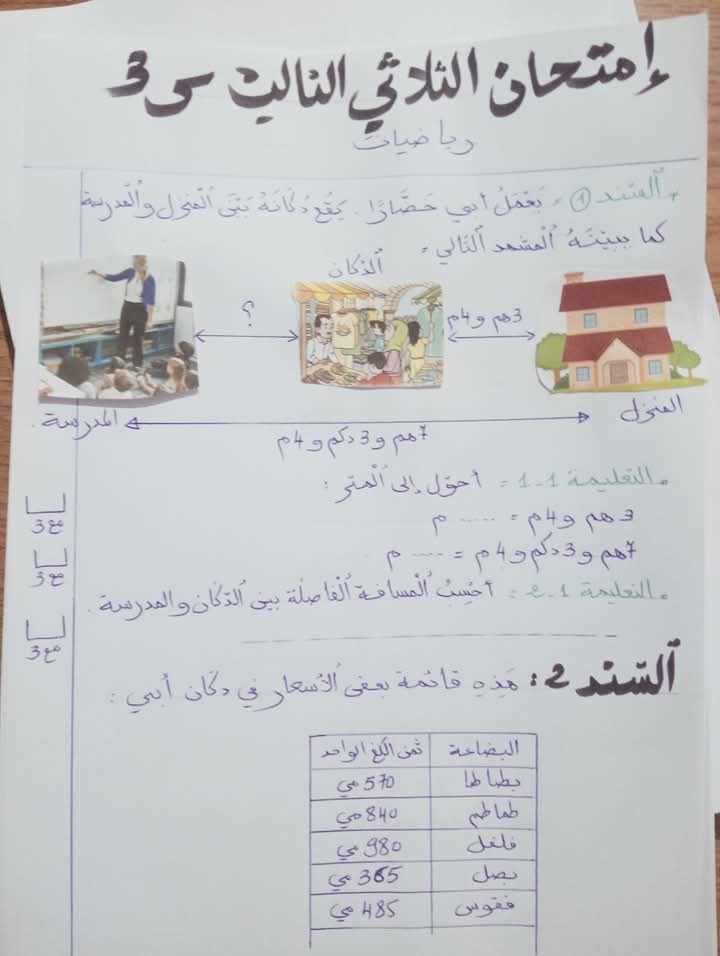 إمتحان الثلاثي الثالث س 3
رياضيات
السند 1 = يَعْمَلُ أبي خَضَّارًا. يَقَعُ دُكّانُهُ بَيْنَ الْمَنْزِلِ والْمَدرسة
كما يبيّنهُ الْمشهد التّالي =
الدّكان
؟
3هم و4م
المنزل
المدرسة.
7هم و3دكم و4م
التعليمة 1-1 = أحوّل إلى الْمتر :
3هم و4م = ..... م
مع3
7هم و3دكم و4م = .... م
مع3
التعليمة 1-2 = أحْسِبُ الْمسافة الْفاصلة بين الدّكّان والمدرسة.
مع3
السّند 2: هَذِهِ قائمة بعض الأسعار في دكّان أبي :
البضاعة ثمن الكلغ الواحد
بطاطا 570 مي
طماطم 840 مي
فلفل 980 مي
بصل 365 مي
فقوس 485 مي